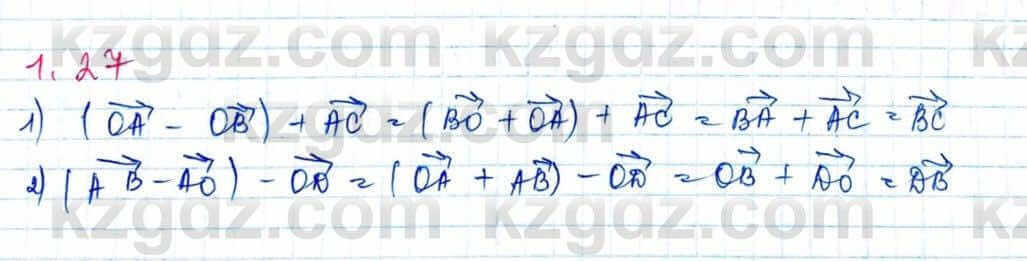 kzgdz.com kzgdz.com kz
1.27
1) (OA⃗ - OB⃗) + AC⃗ = (BO⃗ + OA⃗) + AC⃗ = BA⃗ + AC⃗ = BC⃗
kzgdz.com kzgdz.com
2) (AB⃗ - AO⃗) - OD⃗ = (OA⃗ + AB⃗) - OD⃗ = OB⃗ + DO⃗ = DB⃗
kzgdz.com kzgdz.com kz